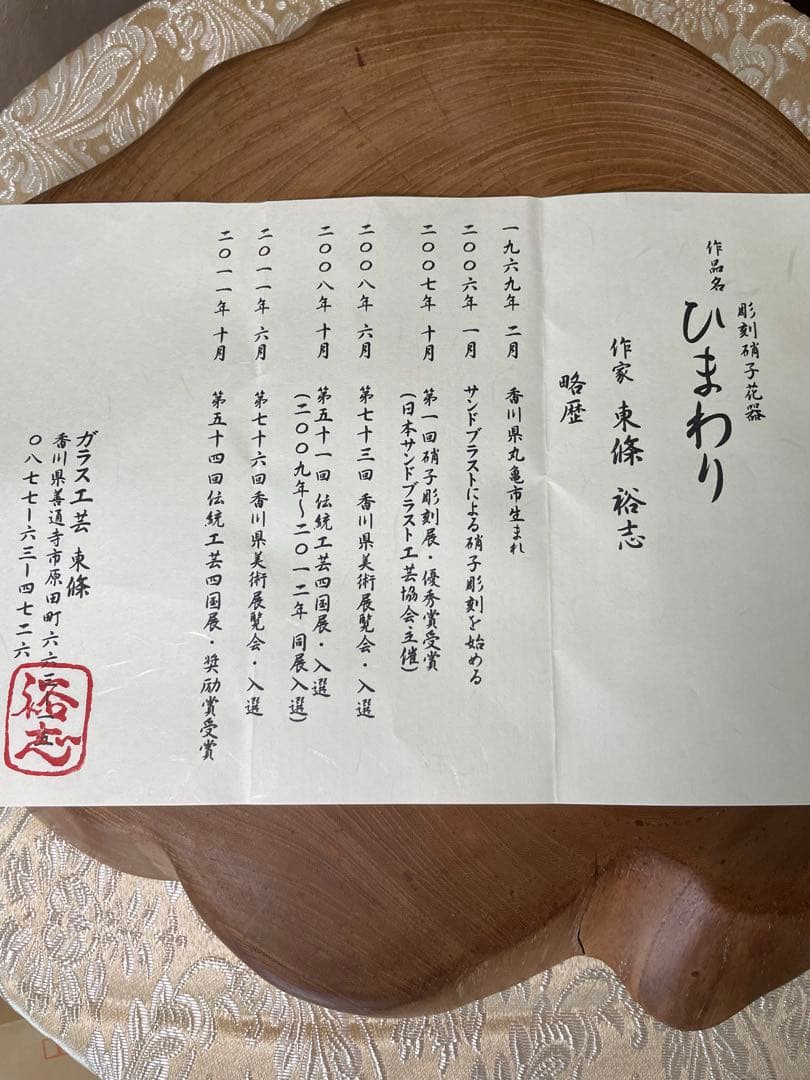 彫刻硝子花器
作品名 ひまわり
作家 東條 裕志
略歴
一九六九年 二月 香川県丸亀市生まれ
二〇〇六年 一月 サンドブラストによる硝子彫刻を始める
二〇〇七年 十月 第一回硝子彫刻展・優秀賞受賞
(日本サンドブラスト工芸協会主催)
二〇〇八年 六月 第七十三回 香川県美術展覧会・入選
二〇〇八年 十月 第五十一回 伝統工芸四国展・入選
(二〇〇九年～二〇一二年 同展入選)
二〇一一年 六月 第七十六回香川県美術展覧会・入選
二〇一一年 十月 第五十四回伝統工芸四国展・奨励賞受賞
ガラス工芸 東條
香川県善通寺市原田町六六
〇八七七ー六三ー四七二六
裕志